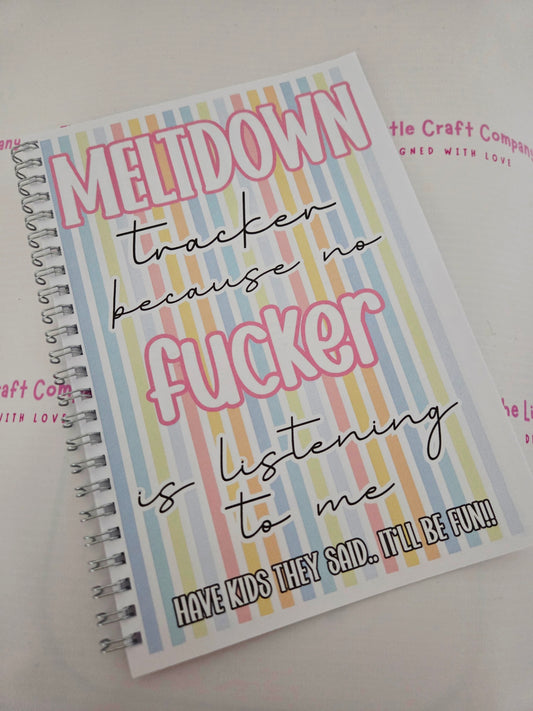 MELTDOWN
tracker
because no
fucker
is listening
to me
HAVE KIDS THEY SAID.. IT'LL BE FUN!!
tle Craft Company
GNED WITH LOVE
any
raft Comp
ITH LOVE
he Li
D